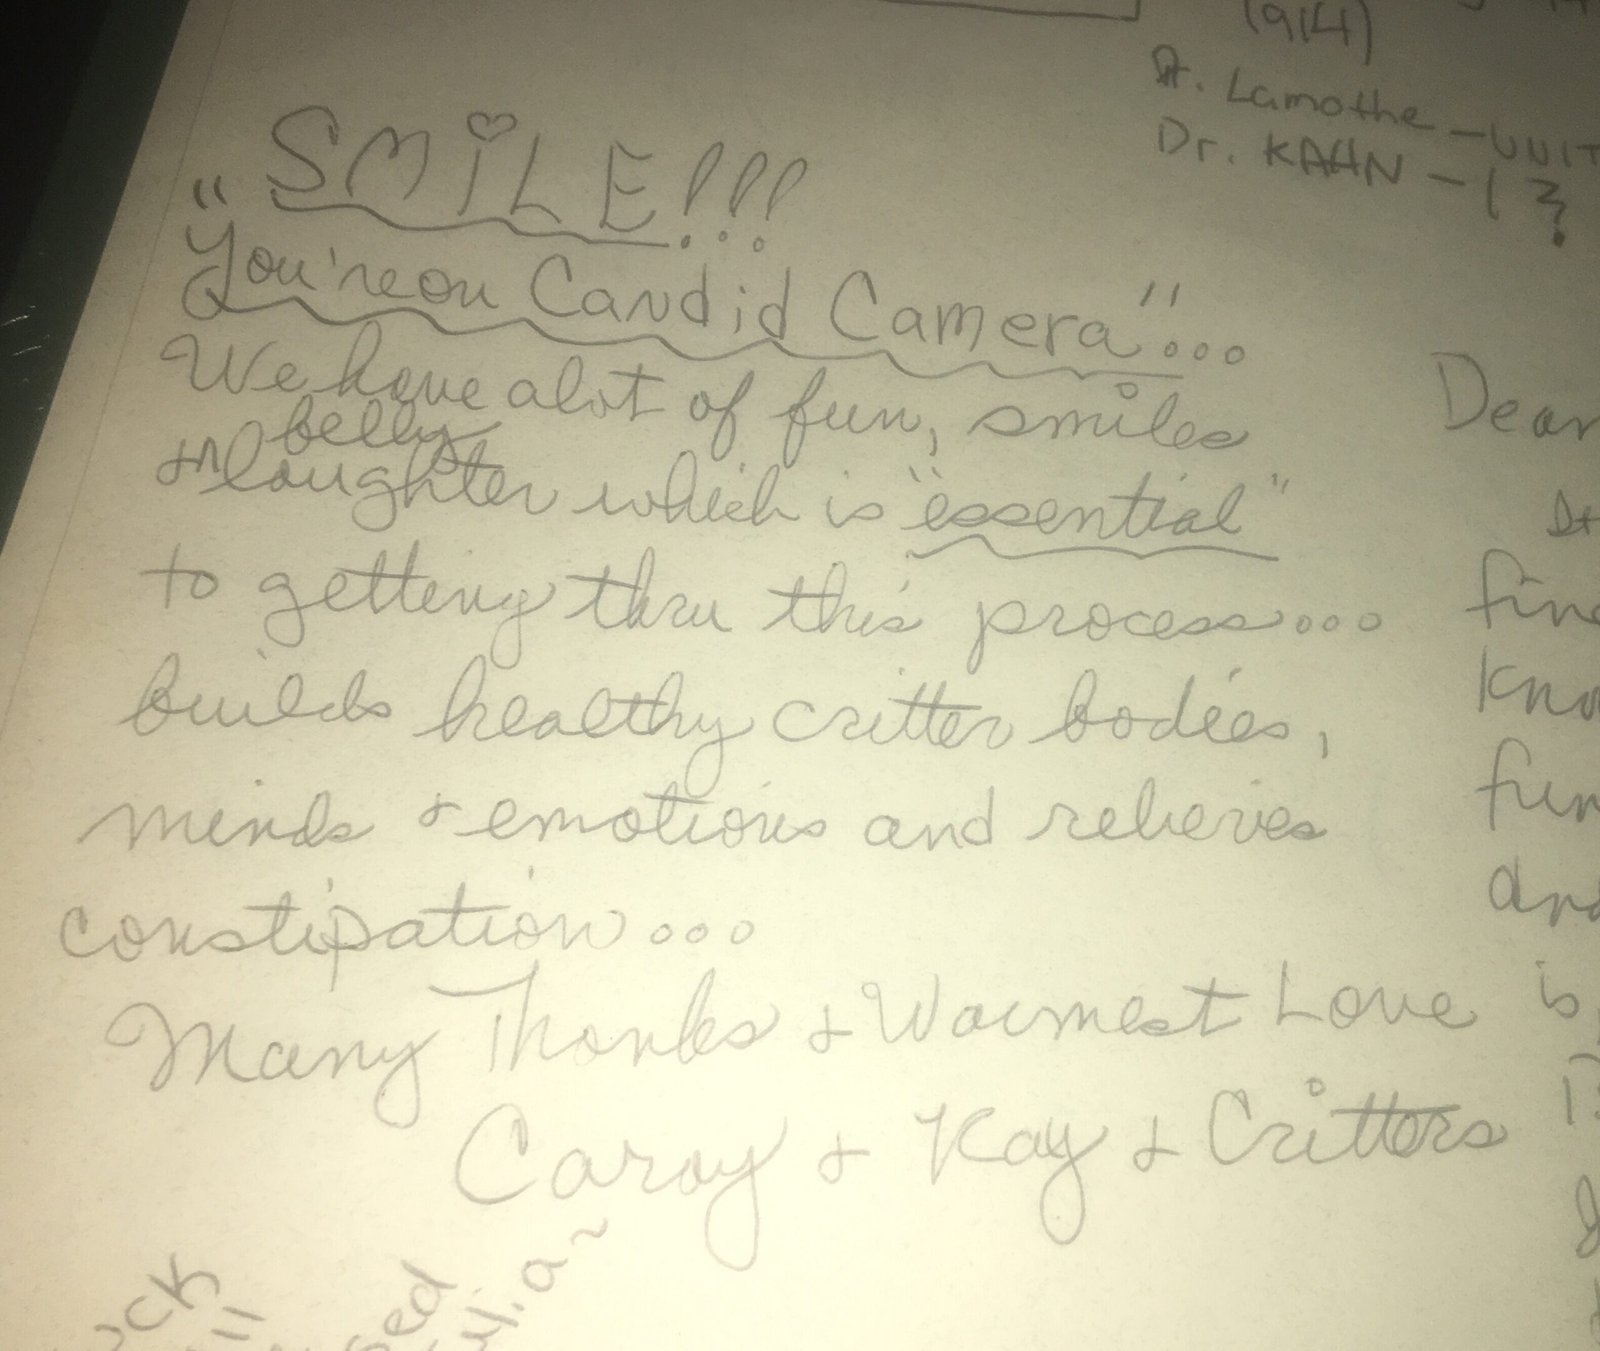 (914)
Dr. Lamothe - UNIT
Dr. KAHN - 1 ?
"SMiLE!!!
You're on Candid Camera"...
We have alot of fun, smiles
+ belly laughter which is "essential"
to getting thru this process...
builds healthy critter bodies,
minds + emotions and relieves
constipation...
Many Thanks + Warmest Love
Caroy + Kay + Critters
Dear
fin
Kno
fun
and
is